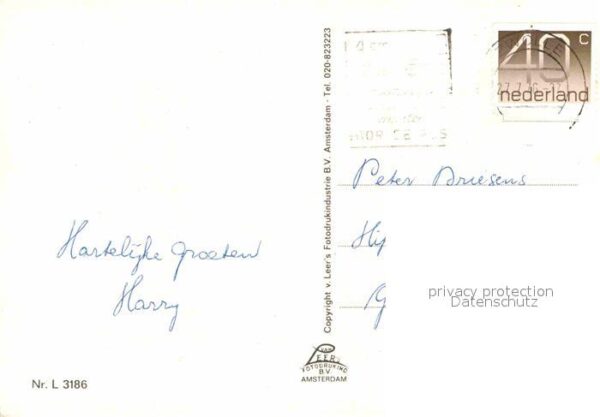 Hartelijke groeten
Harry
Nr. L 3186
Copyright v. Leer's Fotodrukindustrie B.V. Amsterdam - Tel. 020-823223
van
LEER
FOTODRUKIND
B.V.
AMSTERDAM
40 c
nederland
Peter Driesens
privacy protection
Datenschutz